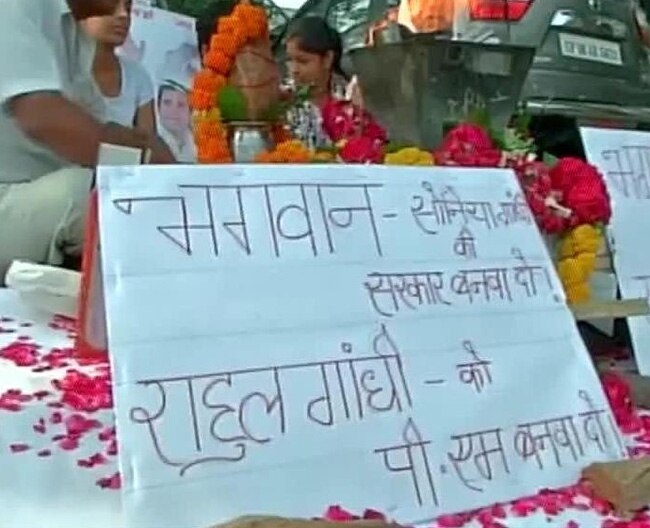 भगवान - सोनिया गांधी
की
सरकार बनवा दो।
राहुल गांधी - को
पी.एम बनवा दो।